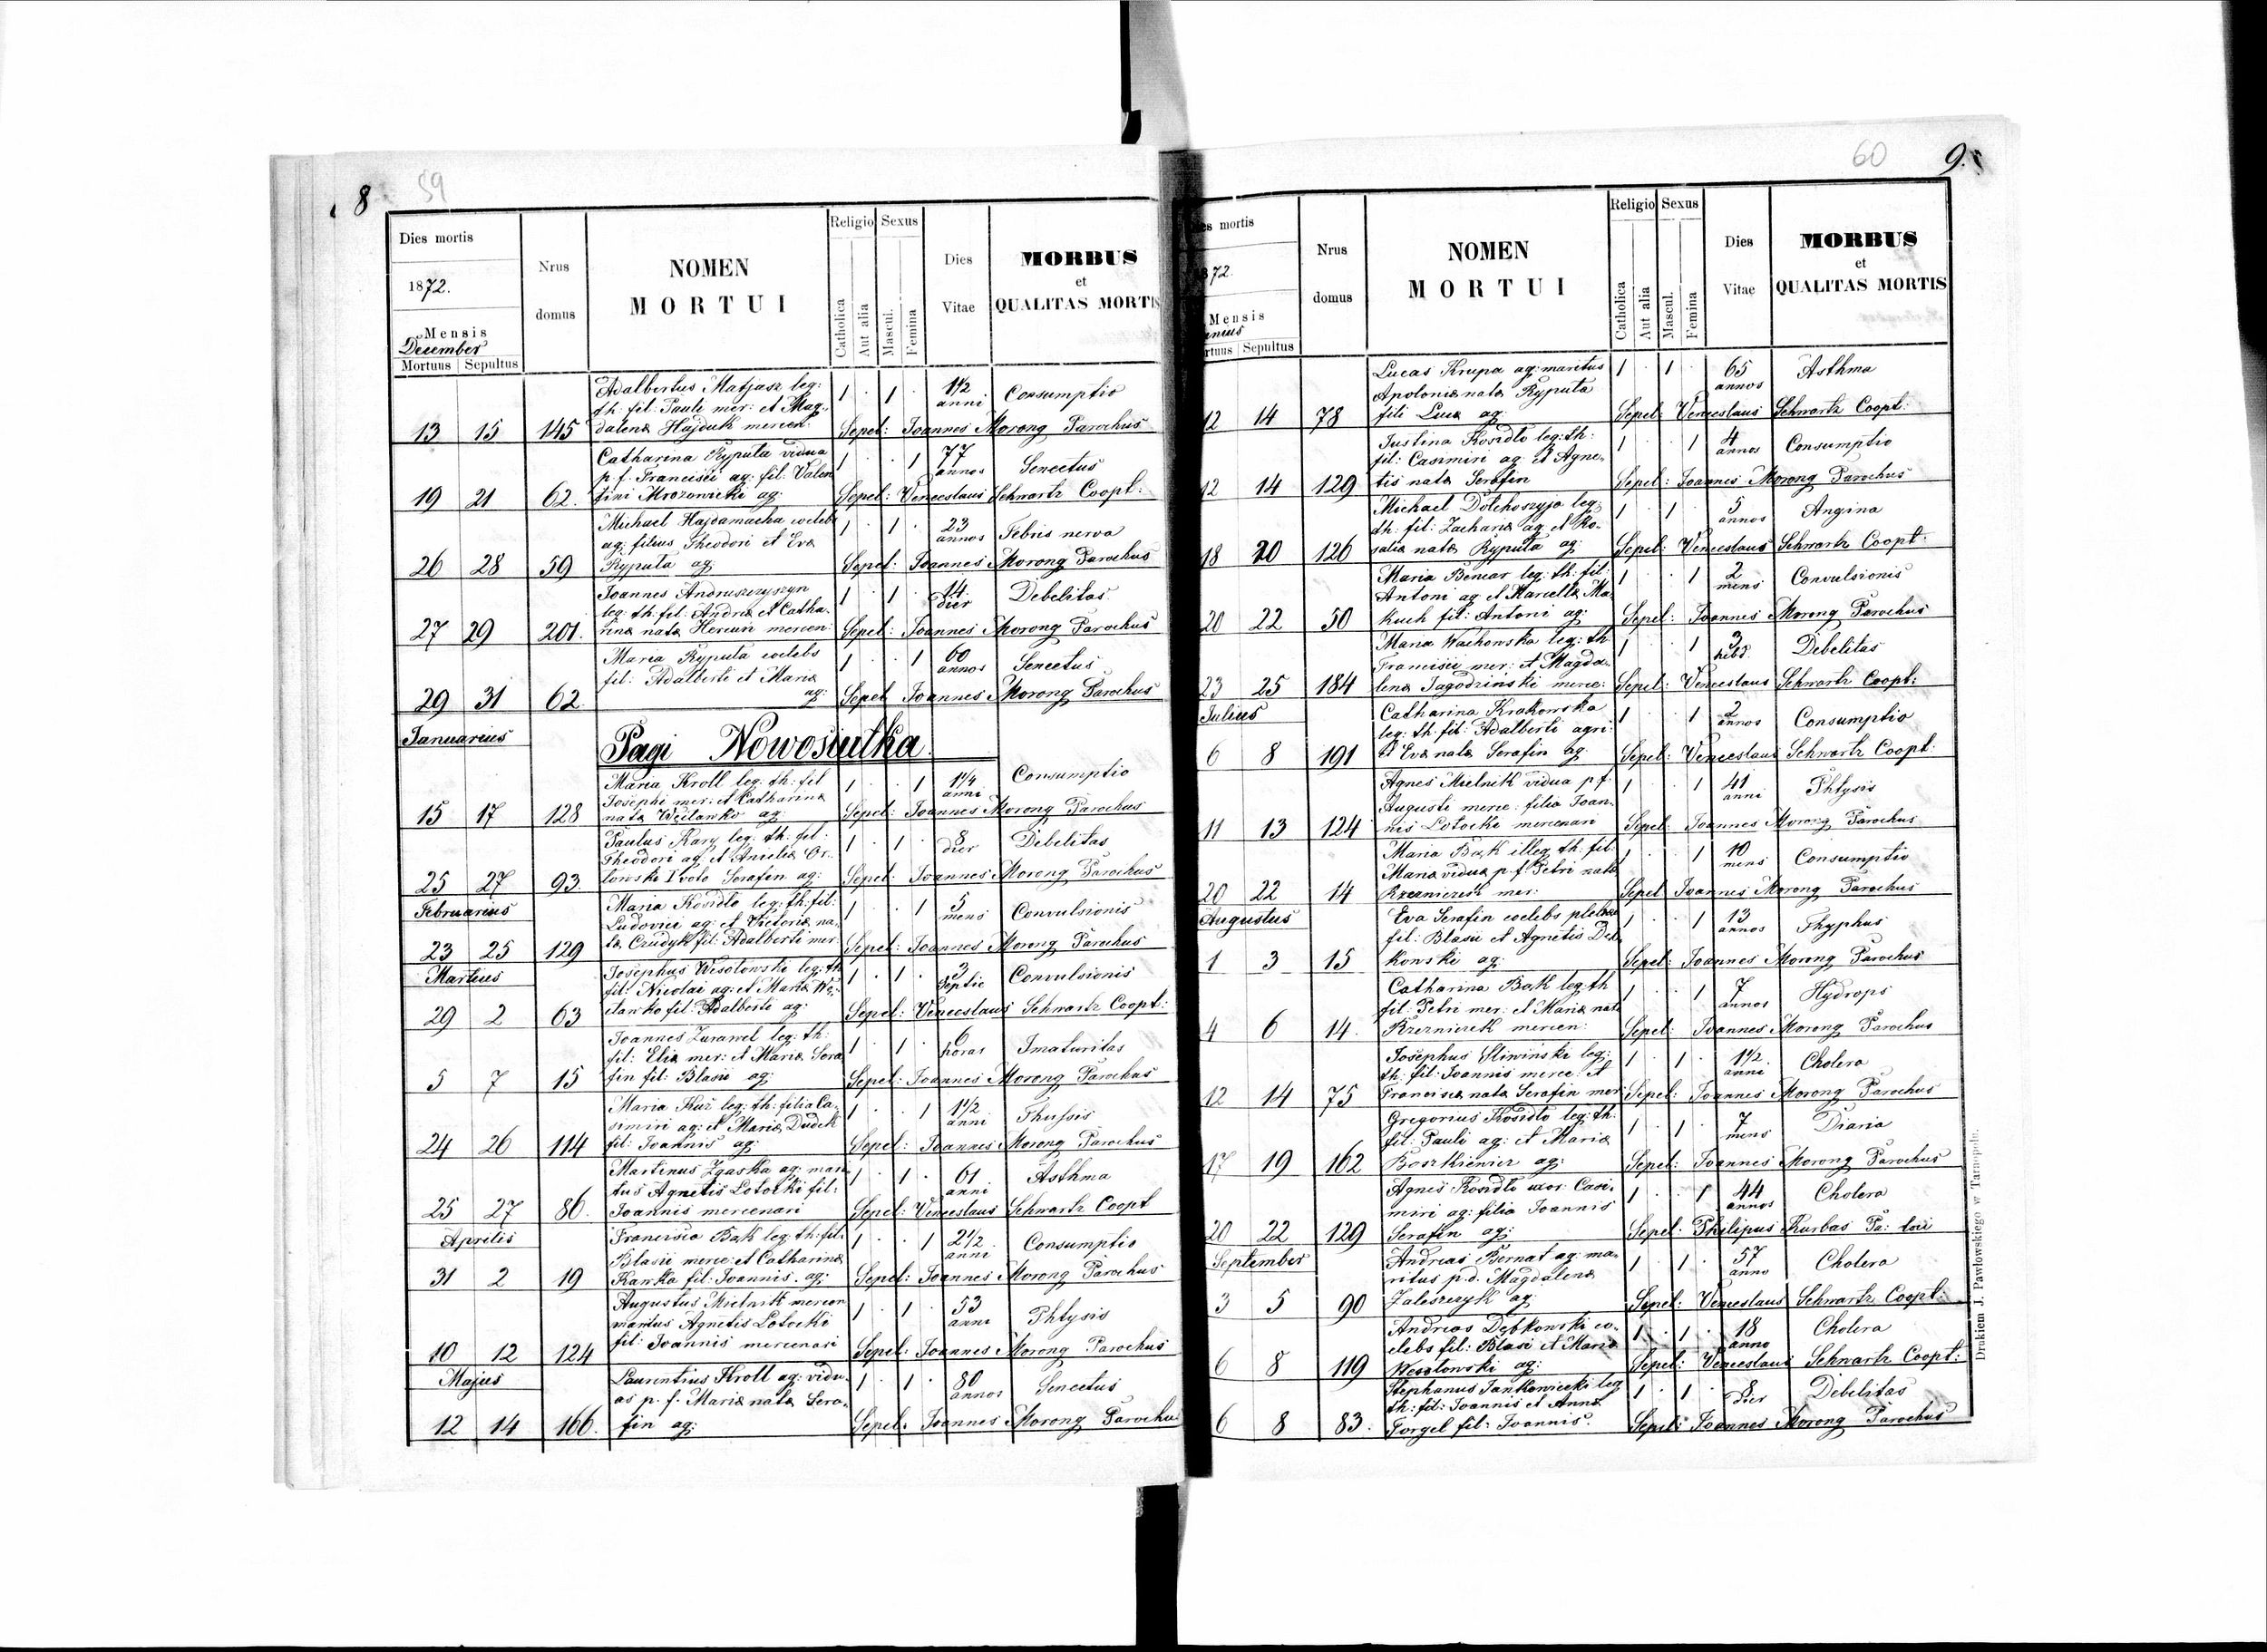 8 59
Dies mortis
1872.
Mensis
December
Mortuus Sepultus
Nrus
domus
NOMEN
MORTUI
Religio Sexus
Catholica
Aut alia
Mascul.
Femina
Dies
Vitae
MORBUS
et
QUALITAS MORTIS
Adalbertus Matjasz leg: 1 . 1 . 1 1/2 Consumptio
th: fil: Pauli mer: et Mag- anni
13 15 145 dalena Hajduk mercen: Sepel: Joannes Morong Parochus
Catharina Ryputa vidua 1 . . 1 77 Senectus
p. f. Francisci ag: fil: Valen annos
19 21 62. tini Mrozowicki ag: Sepel: Venceslaus Schwartz Coopt:
Michael Hajdamacha coelebs 1 . 1 . 23 Febris nerva
ag: filius Theodori et Eva annos
26 28 59 Ryputa ag: Sepel: Joannes Morong Parochus
Joannes Andruszczyszyn 1 . 1 14 Debelitas
leg: th: fil: Andrea et Catha- dier
27 29 201. rina nata Hercun mercen: Sepel: Joannes Morong Parochus
Maria Ryputa coelebs 1 . . 1 60 Senectus
fil: Adalberti et Maria annos
29 31 62 ag: Sepel Joannes Morong Parochus
Januarius
Pagi Nowosiulka.
Maria Kroll leg: th: fil 1 . . 1 1 1/4 Consumptio
Josephi mer: et Catharina anni
15 17 128 nata ag: Sepel: Joannes Morong Parochus
Paulus Kary leg: th: fil: 1 . 1 . 8 Debelitas
Theodori ag: et Anielia Or- dier
25 27 93 lowski I voto Serafin ag: Sepel: Joannes Morong Parochus
Februarius
Maria Kosidlo leg: th: fil: 1 . . 1 5 Convulsionis
Ludovici ag: et Victoria na- mens
23 25 129 ta Czudyk fil: Adalberti mer: Sepel: Joannes Morong Parochus
Martius
Josephus Wesolowski leg: th 1 . 1 . 3 Convulsionis
fil: Nicolai ag: et Maria We- Septie
29 2 63 fil: Adalberti ag: Sepel: Venceslaus Schwartz Coopt:
Joannes Zurawel leg: th: 1 . 1 . 6 Imaturitas
fil: Elia mer: et Maria Sera horas
5 7 15 fin fil: Blasii ag: Sepel: Joannes Morong Parochus
Maria Kuz leg: th: filia Ca- 1 . . 1 1 1/2 Thussis
simiri ag: et Maria Dudek anni
24 26 114 fil: Joannis ag: Sepel: Joannes Morong Parochus
Martinus Zgaska ag: mari 1 . 1 . 61 Asthma
tus Agnetis Lotocki fil: anni
25 27 86. Joannis mercenari Sepel: Venceslaus Schwartz Coopt
Aprilis
Francisca Bak leg: th: fil: 1 . . 1 2 1/2 Consumptio
Blasii merc: et Catharina anni
31 2 19 Kawka fil: Joannis. ag: Sepel: Joannes Morong Parochus
Augustus Mielnik mercen 1 . 1 . 53 Phtysis
maritus Agnetis Lotocki anni
10 12 124 fil: Joannis mercenari Sepel: Joannes Morong Parochus
Majus
Laurentius Kroll ag: vidu- 1 . 1 . 80 Senectus
us p. f. Maria nata Sera- annos
12 14 166. fin ag: Sepel: Joannes Morong Parochu
60 9.
ies mortis
1872.
Mensis
unius
rtuus Sepultus
Nrus
domus
NOMEN
MORTUI
Religio Sexus
Catholica
Aut alia
Mascul.
Femina
Dies
Vitae
MORBUS
et
QUALITAS MORTIS
Lucas Krupa ag: maritus 1 . 1 . 65 Asthma
Apolonia nata Ryputa annos
12 14 78 fili Luca ag: Sepel: Venceslaus Schwartz Coopt:
Justina Kosidlo leg: th: 1 . . 1 4 Consumptio
fil: Casimiri ag: et Agne- annos
12 14 129 tis nata Serafin Sepel: Joannes Morong Parochus
Michael Dolchoszyja leg: 1 . 1 5 Angina
th: fil: Zacharia ag: et Ro- annos
18 20 126 salia nata Ryputa ag: Sepel: Venceslaus Schwartz Coopt:
Maria Bencar leg: th: fil: 1 . . 1 2 Convulsionis
Antoni ag: et Marcella Ma mens
20 22 50 kuch fil: Antoni ag: Sepel: Joannes Morong Parochus
Maria Wachowska leg: th 1 . . 1 3 Debelitas
Francisci mer: et Magda- hebd.
23 25 184 lena Jagodzinski merce: Sepel: Venceslaus Schwartz Coopt:
Julius
Catharina Krakowska 1 . . 1 2 Consumptio
leg: th: fil: Adalberti agri: annos
6 8 191 et Eva nata Serafin ag: Sepel: Venceslaus Schwartz Coopt:
Agnes Mielnik vidua p f. 1 . . 1 41 Phtysis
Augusti merc: filia Joan- anni
11 13 124 nis Lotocki mercenari Sepel: Joannes Morong Parochus
Maria Bak illeg th: fil: 1 . . 1 10 Consumptio
Maria vidua p. f. Petri nata mens
20 22 14 mer: Sepel Joannes Morong Parochus
Augustus
Eva Serafin coelebs 1 . . 1 13 Thyphus
fil: Blasii et Agnetis Deb annos
1 3 15 kowski ag: Sepel: Joannes Morong Parochus
Catharina Bak leg th 1 . . 1 7 Hydrops
fil: Petri mer: et Maria nata annos
4 6 14. mercen: Sepel: Joannes Morong Parochus
Josephus Sliwinski leg: 1 . 1 . 1 1/2 Cholera
th: fil: Joannis merce: et anni
12 14 75 Francisca nata Serafin mer: Sepel: Joannes Morong Parochus
Gregorius Kosidlo leg: th: 1 . 1 . 7 Diaria
fil: Pauli ag: et Maria mens
17 19 162 Boszkiewicz ag: Sepel: Joannes Morong Parochus
Agnes Kosidlo uxor Casi- 1 . . 1 44 Cholera
miri ag: filia Joannis annos
20 22 129 Serafin ag: Sepel: Philipus Kurbas Pa: loci
September
Andreas Bernat ag: ma- 1 . 1 . 57 Cholera
ritus p. d. Magdalena anno
3 5 90 Zaleszczyk ag: Sepel: Venceslaus Schwartz Coopt:
Andreas Dębkowski co- 1 . 1 . 18 Cholera
elebs fil: Blasi et Maria anno
6 8 119 Wesolowski ag: Sepel: Venceslaus Schwartz Coopt:
Stephanus Jankowiecki leg 1 . 1 . 8 Debelitas
th: fil: Joannis et Anna dier
6 8 83: Forgel fil: Joannis. Sepel: Joannes Morong Parochus
Drukiem J. Pawłowskiego w Tarnopolu.